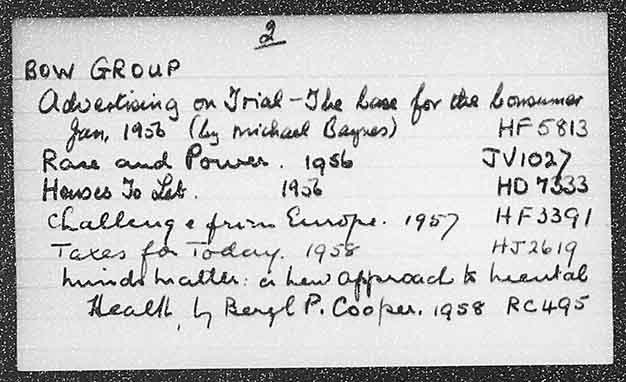 2
BOW GROUP
Advertising on Trial - The Case for the Consumer
Jan, 1956 (by Michael Baynes) HF5813
Race and Power. 1956 JV1027
Houses To Let. 1956 HD7333
Challenge from Europe. 1957 HF3391
Taxes for Today. 1958 HJ2619
Minds Matter: a new approach to Mental
Health, by Beryl P. Cooper. 1958 RC495